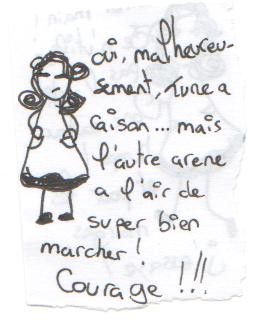 oui, malheureu-
sement, Tune a
raison... mais
l'autre arene
a l'air de
super bien
marcher !
Courage !!!